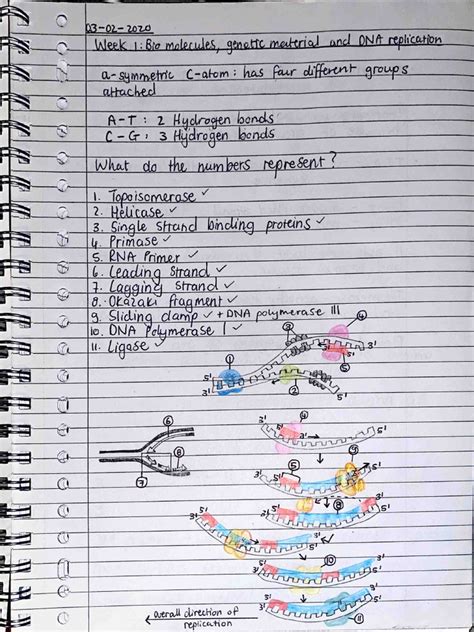 03-02-2020
Week 1: Bio molecules, genetic material and DNA replication
a-symmetric C-atom: has four different groups
attached
A-T: 2 Hydrogen bonds
C-G: 3 Hydrogen bonds
What do the numbers represent?
1. Topoisomerase ✓
2. Helicase ✓
3. Single strand binding proteins ✓
4. Primase ✓
5. RNA Primer ✓
6. Leading Strand ✓
7. Lagging Strand ✓
8. Okazaki fragment ✓
9. Sliding clamp ✓ + DNA polymerase III
10. DNA Polymerase I ✓
11. Ligase ✓
3 4
3'
1 5
5' 5'
3' 2 5'
6 3' 4 5'
8 9
7 5 5'
3' 8
3' 5'
3' 5'
10
3' 5'
3' 5'
11
overall direction of
replication